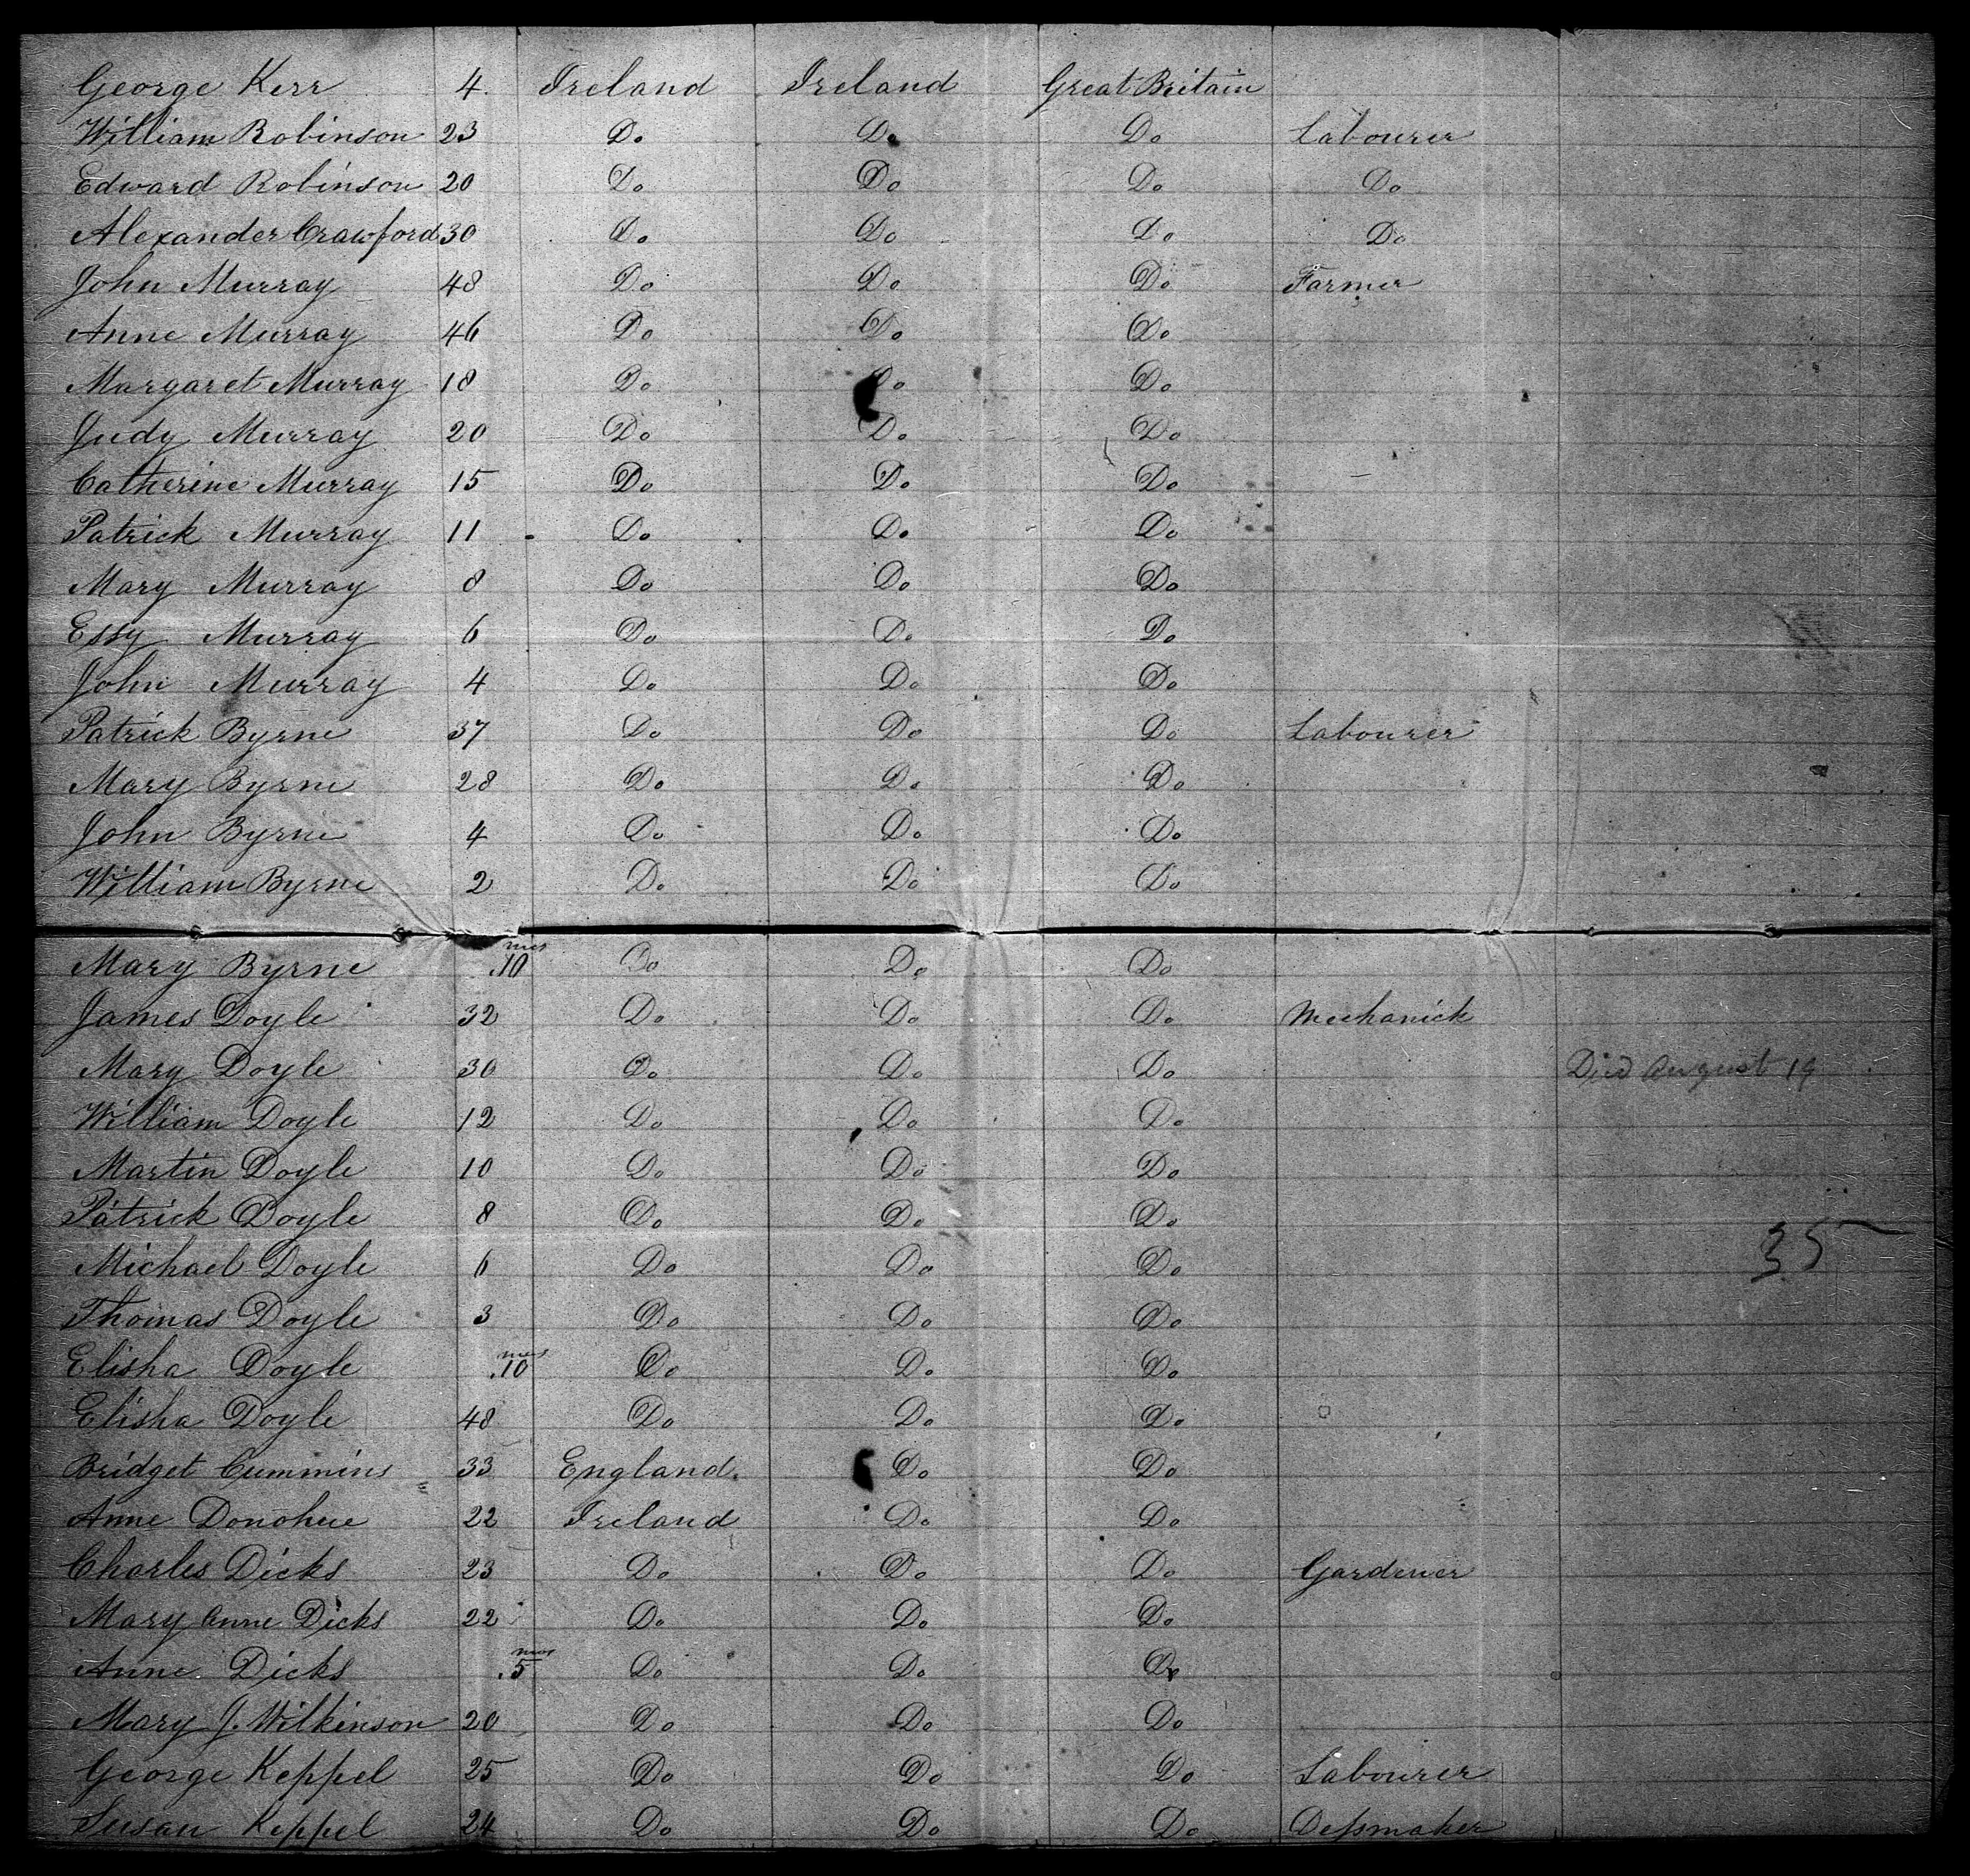 George Kerr 4. Ireland Ireland Great Britain
William Robinson 23 Do Do Do Labourer
Edward Robinson 20 Do Do Do Do
Alexander Crawford 30 Do Do Do Do
John Murray 48 Do Do Do Farmer
Anne Murray 46 Do Do Do
Margaret Murray 18 Do Do Do
Judy Murray 20 Do Do Do
Catherine Murray 15 Do Do Do
Patrick Murray 11 Do Do Do
Mary Murray 8 Do Do Do
Essy Murray 6 Do Do Do
John Murray 4 Do Do Do
Patrick Byrne 37 Do Do Do Labourer
Mary Byrne 28 Do Do Do
John Byrne 4 Do Do Do
William Byrne 2 Do Do Do
Mary Byrne .10 mos Do Do Do
James Doyle 32 Do Do Do Mechanick
Mary Doyle 30 Do Do Do Died August 19
William Doyle 12 Do Do Do
Martin Doyle 10 Do Do Do
Patrick Doyle 8 Do Do Do
35
Michael Doyle 6 Do Do Do
Thomas Doyle 3 Do Do Do
Elisha Doyle .10 mos Do Do Do
Elisha Doyle 48 Do Do Do
Bridget Cummins 33 England. Do Do
Anne Donohue 22 Ireland Do Do
Charles Dicks 23 Do Do Do Gardener
Mary Anne Dicks 22 Do Do Do
Anne Dicks .5 mos Do Do Do
Mary J. Wilkinson 20 Do Do Do
George Keppel 25 Do Do Do Labourer
Susan Keppel 24 Do Do Do Dessmaker